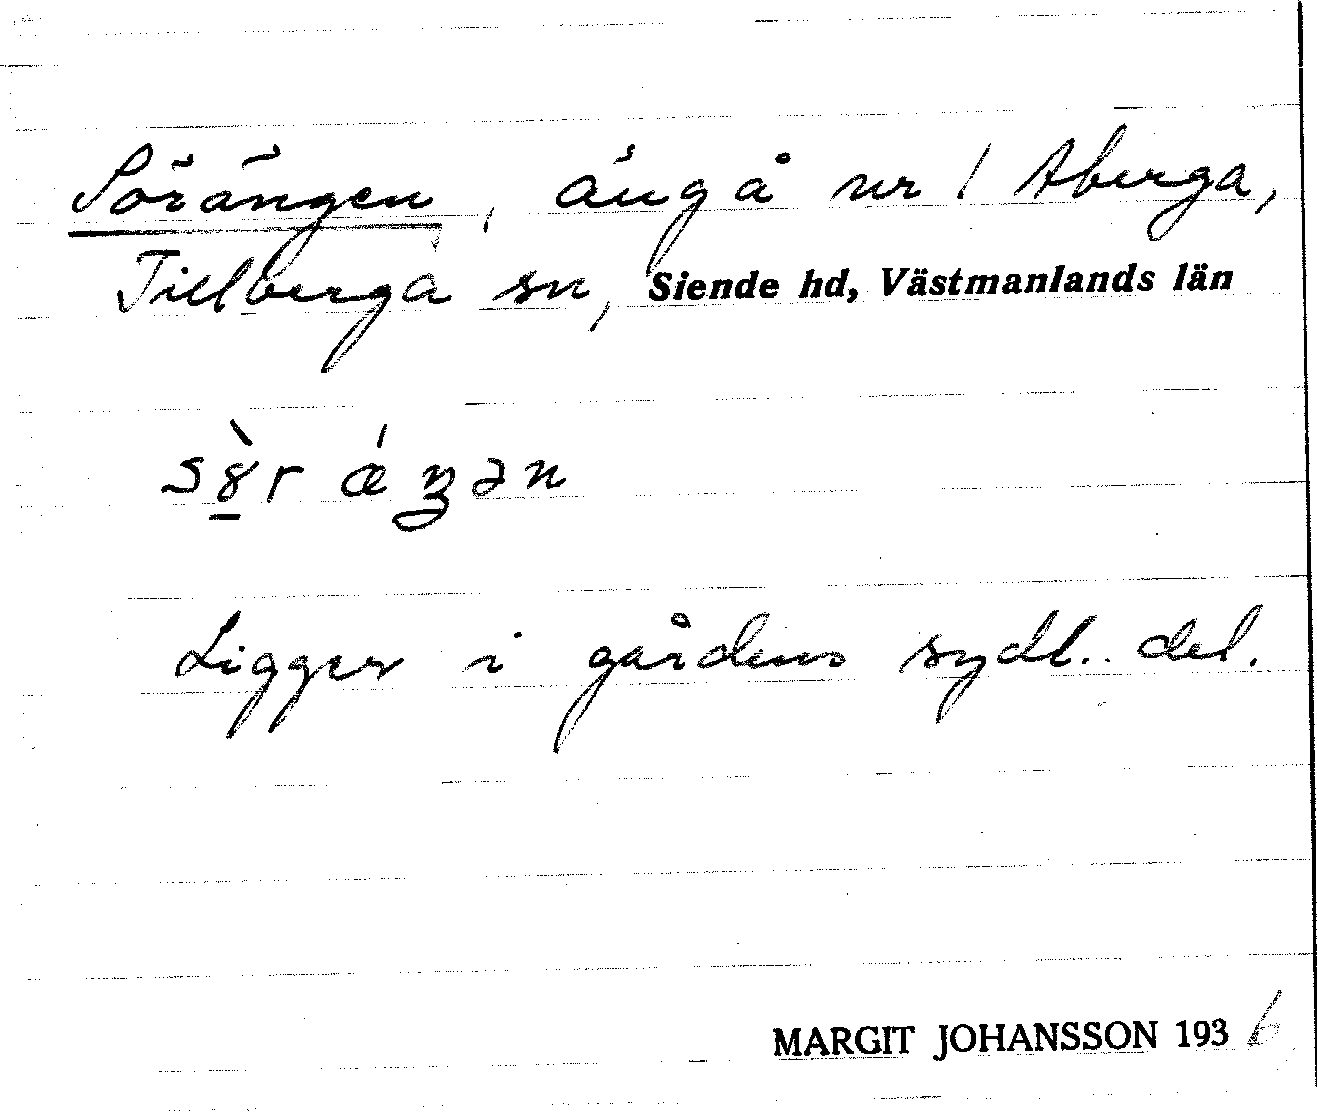 Sörängen, äng å nr 1 Aberga,
Tillberga sn, Siende hd, Västmanlands län
Ligger i gårdens sydl. del.
MARGIT JOHANSSON 1936